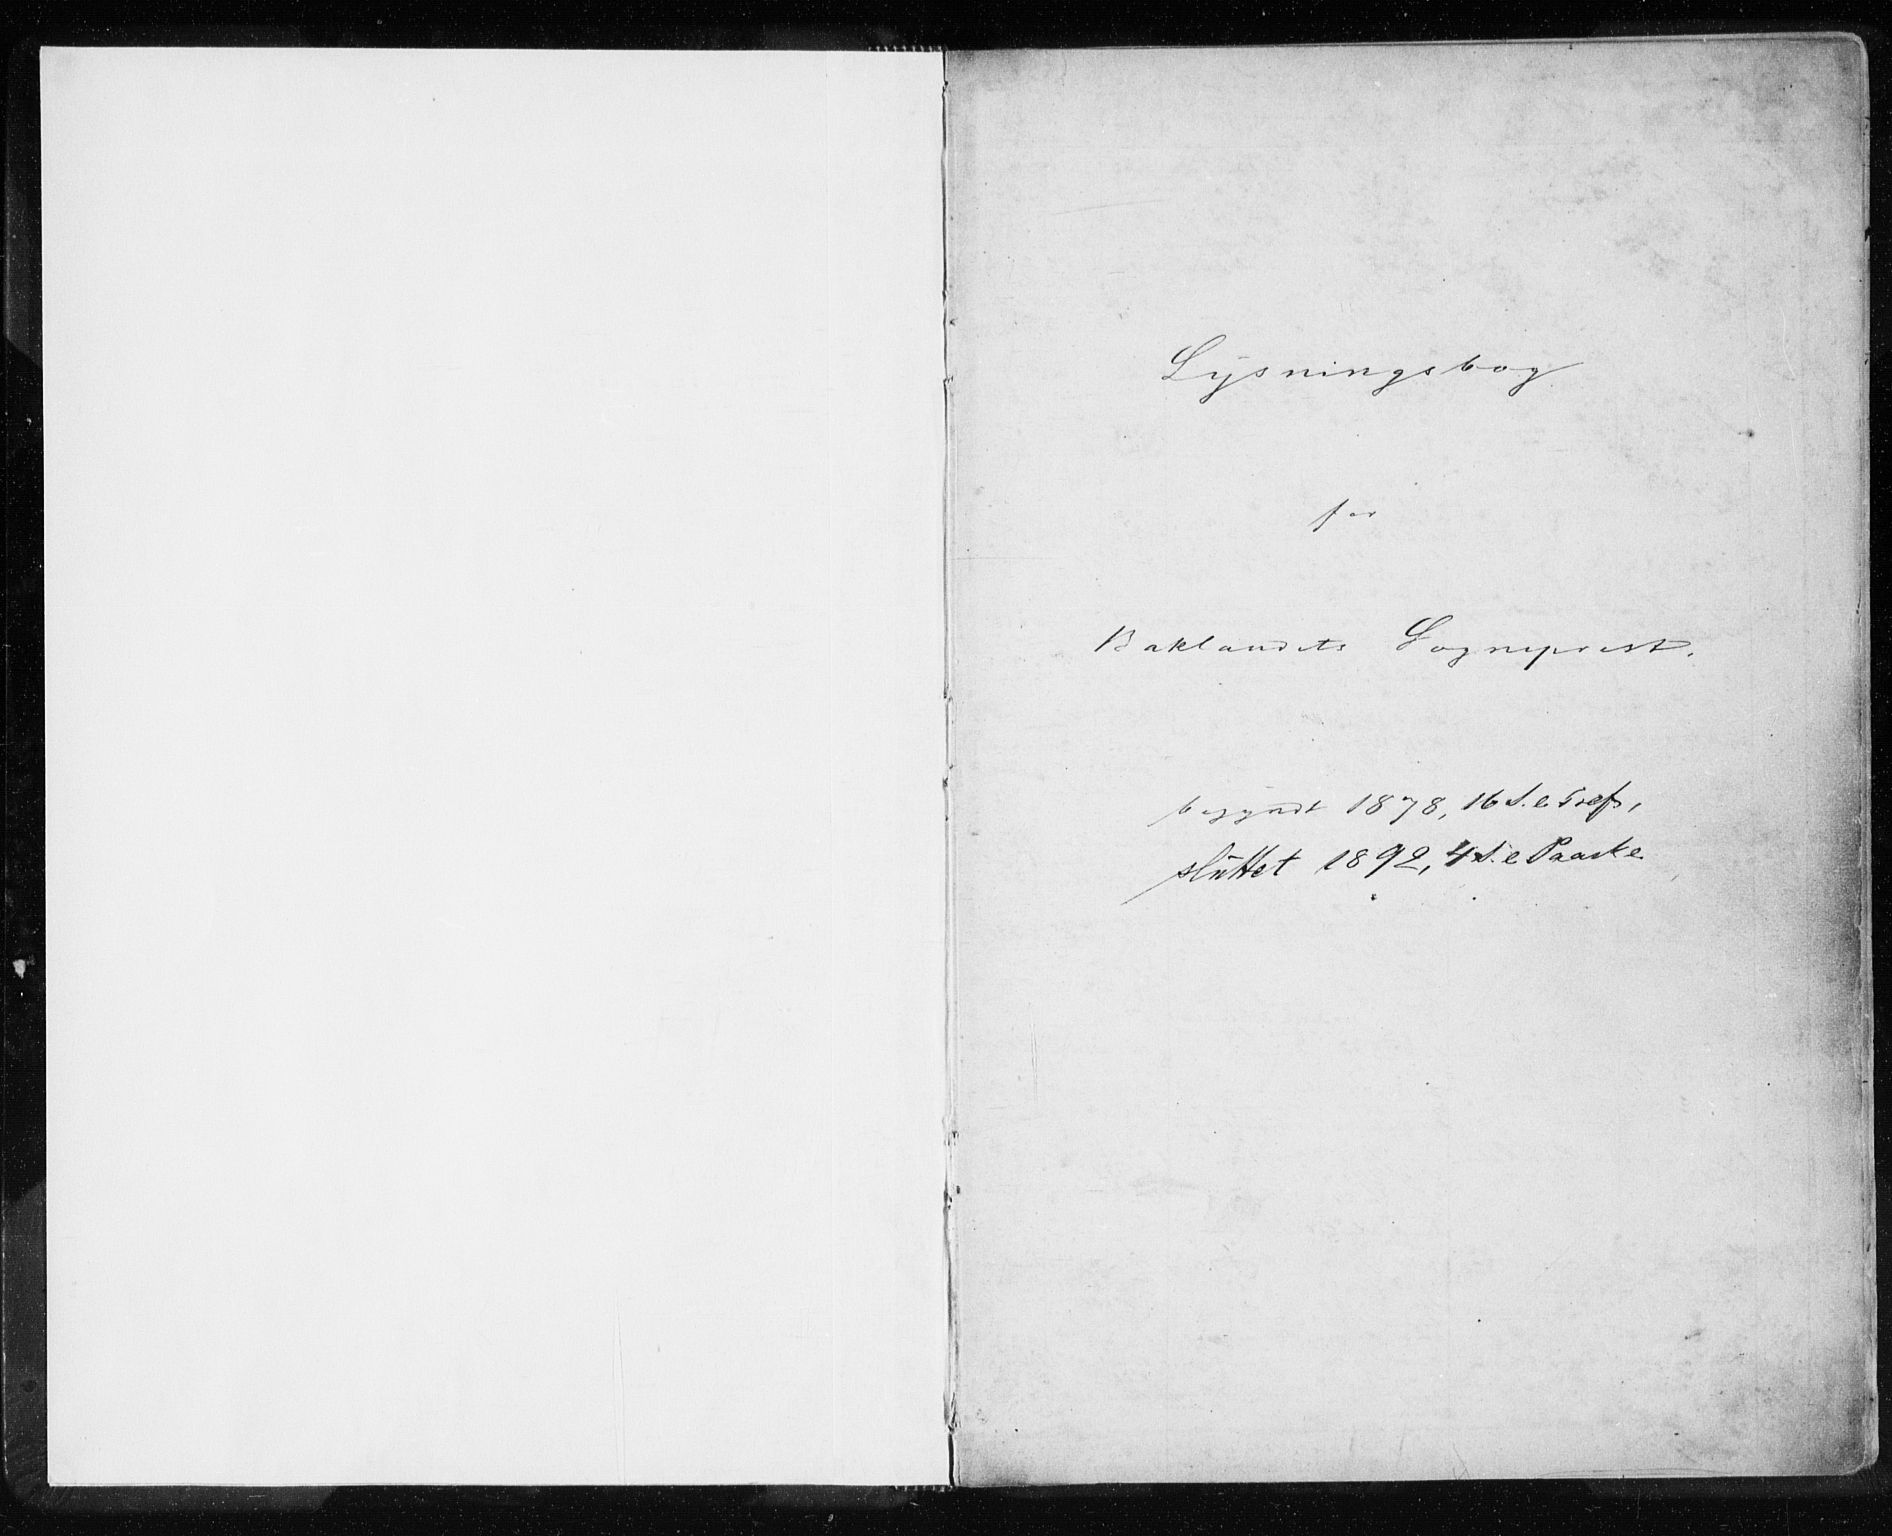 Lysningsbog
for
Baklandets Sogneprest.
begyndt 1878, 16 S. e Tref,
sluttet 1892, 4 S. e Paaske